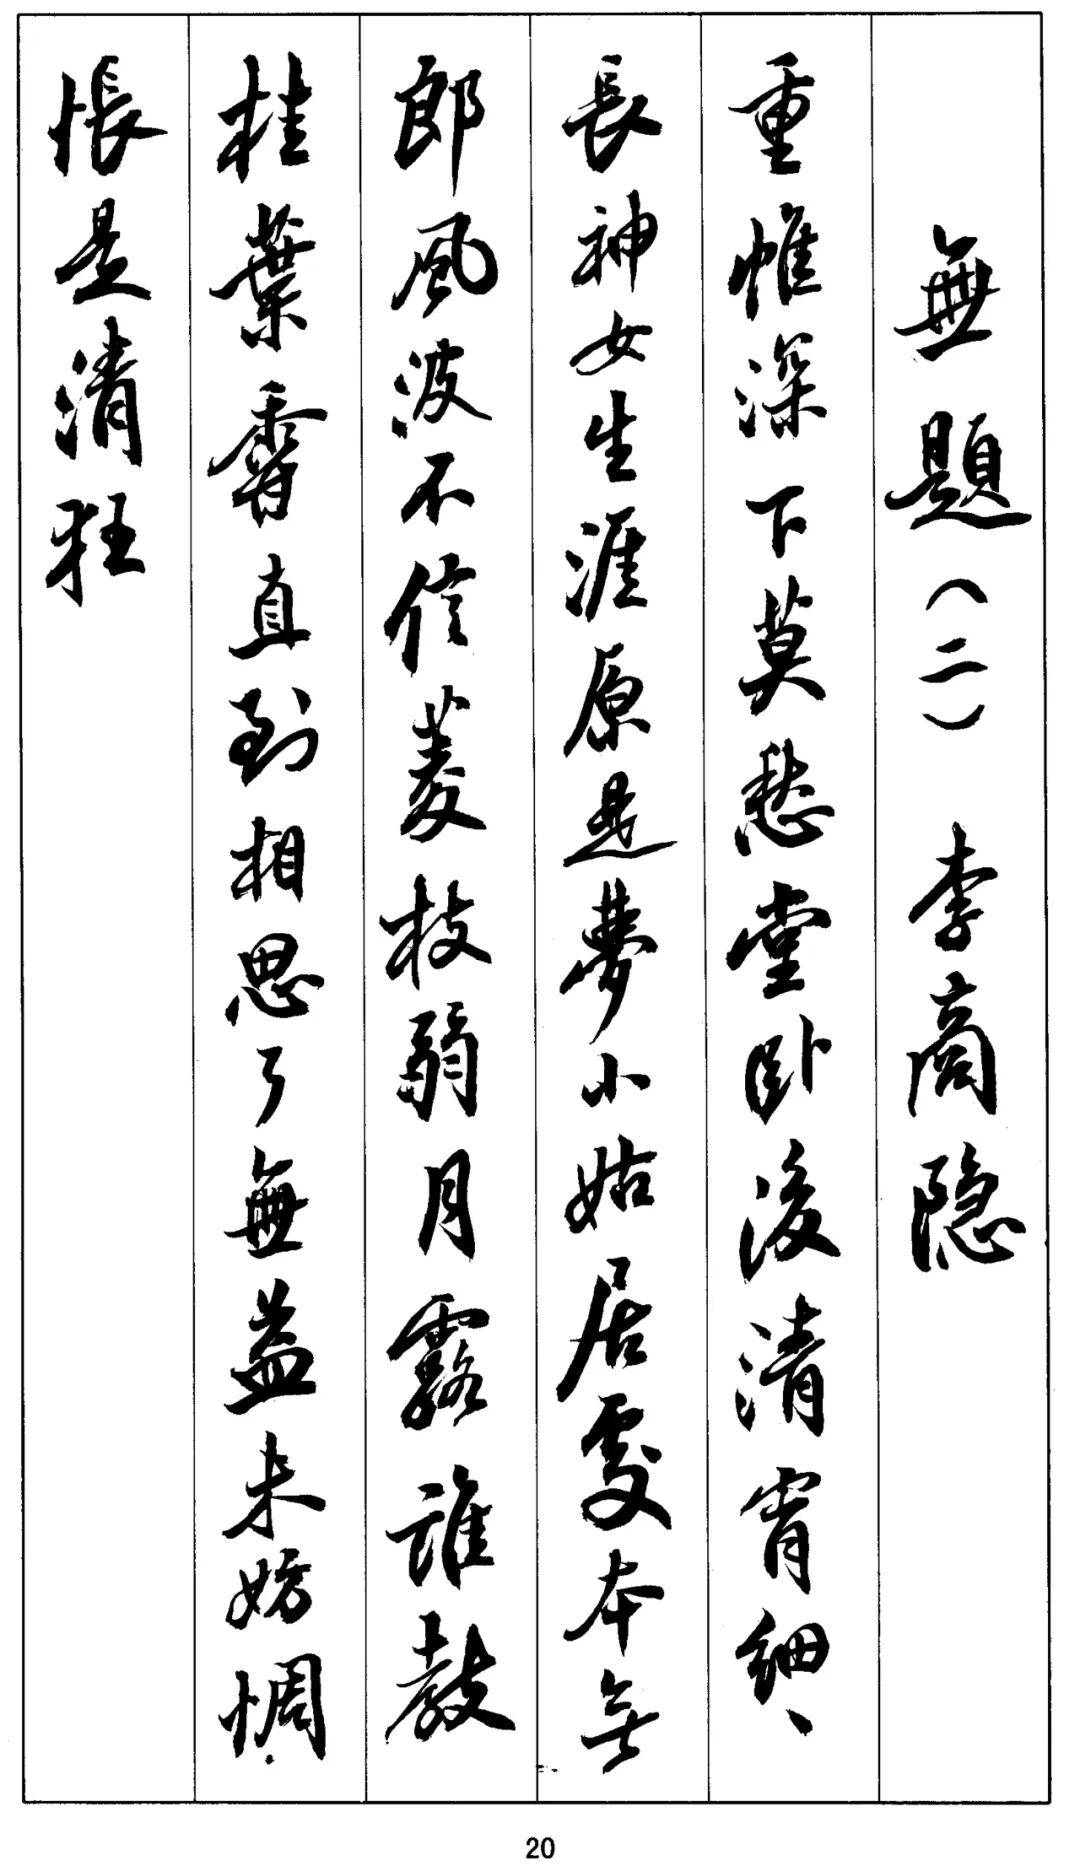 無題（二） 李商隐
重帷深下莫愁堂卧後清宵細、
長神女生涯原是夢小姑居處本無
郎風波不信菱枝弱月露誰教
桂葉香直到相思了無益未妨惆
悵是清狂
20